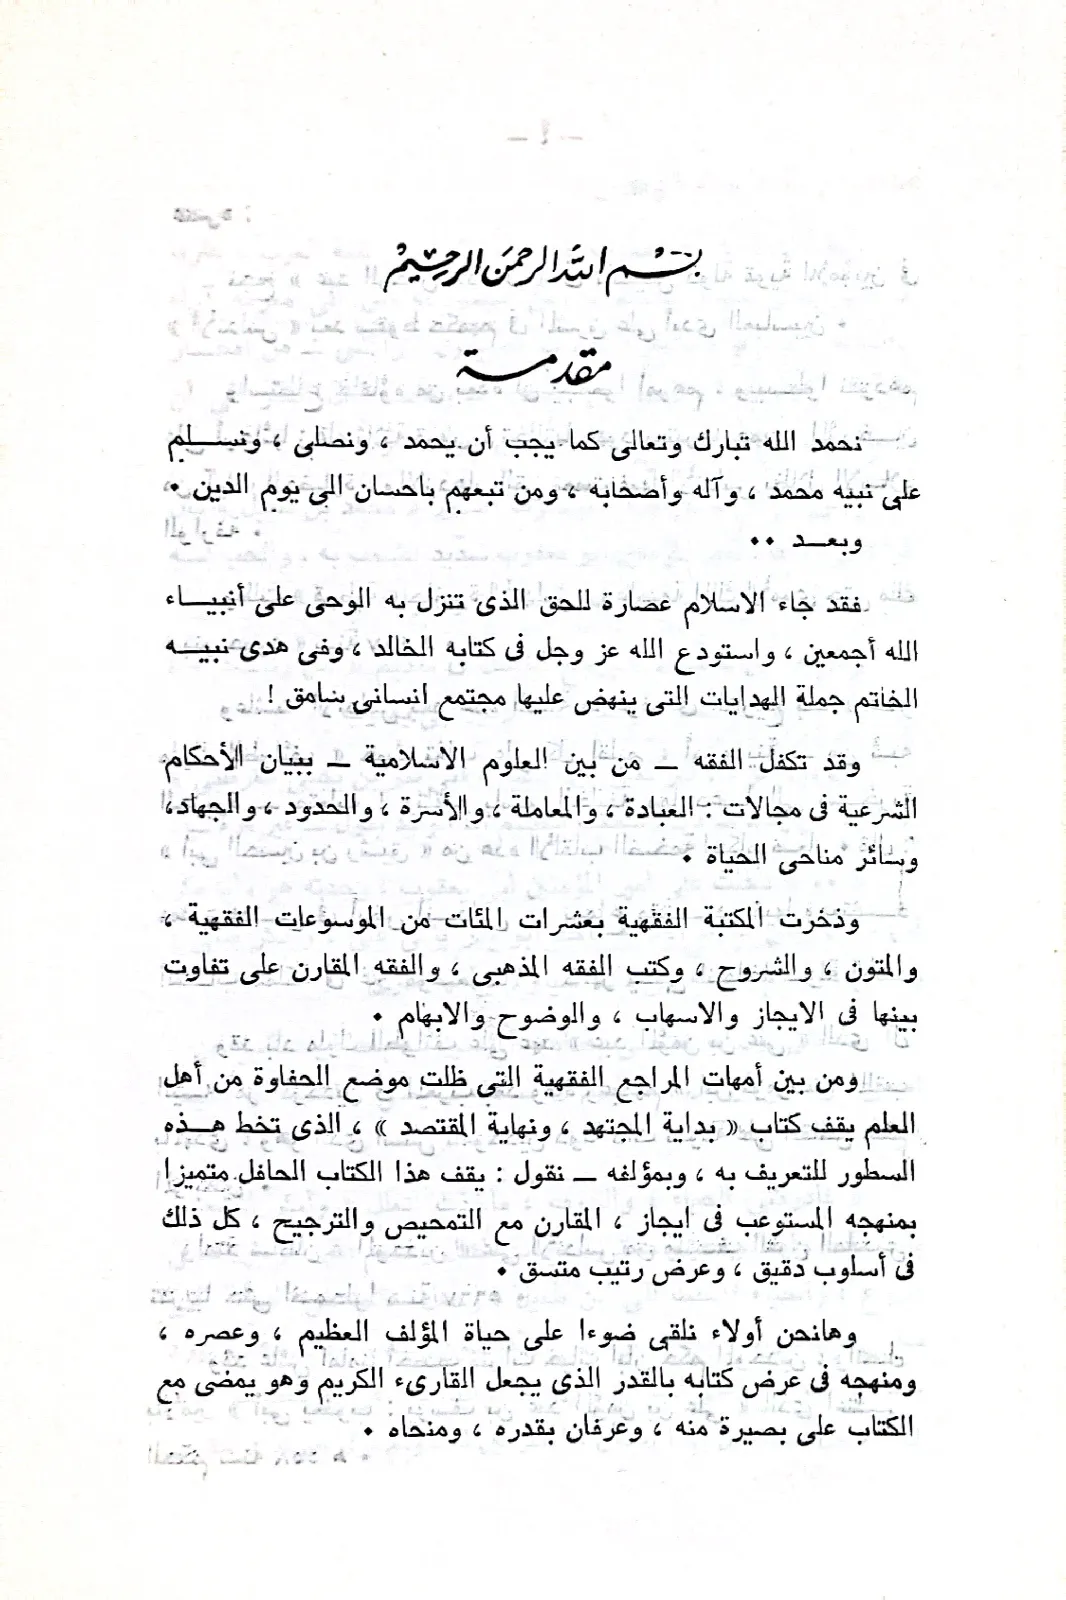 بسم الله الرحمن الرحيم
مقدمة
نحمد الله تبارك وتعالى كما يجب أن يحمد ، ونصلى ، ونسلم
على نبيه محمد ، وآله وأصحابه ، ومن تبعهم باحسان الى يوم الدين •
وبعد ••
فقد جاء الاسلام عصارة للحق الذى تنزل به الوحى على أنبياء
الله أجمعين ، واستودع الله عز وجل فى كتابه الخالد ، وفى هدى نبيه
الخاتم جملة الهدايات التى ينهض عليها مجتمع انسانى سامق !
وقد تكفل الفقه ــ من بين العلوم الاسلامية ــ ببيان الأحكام
الشرعية فى مجالات : العبادة ، والمعاملة ، والأسرة ، والحدود ، والجهاد،
وسائر مناحى الحياة •
وذخرت المكتبة الفقهية بعشرات المئات من الموسوعات الفقهية ،
والمتون ، والشروح ، وكتب الفقه المذهبى ، والفقه المقارن على تفاوت
بينها فى الايجاز والاسهاب ، والوضوح والابهام •
ومن بين أمهات المراجع الفقهية التى ظلت موضع الحفاوة من أهل
العلم يقف كتاب « بداية المجتهد ، ونهاية المقتصد » ، الذى تخط هذه
السطور للتعريف به ، وبمؤلفه ــ نقول : يقف هذا الكتاب الحافل متميزا
بمنهجه المستوعب فى ايجاز ، المقارن مع التمحيص والترجيح ، كل ذلك
فى أسلوب دقيق ، وعرض رتيب متسق •
وهانحن أولاء نلقى ضوءا على حياة المؤلف العظيم ، وعصره ،
ومنهجه فى عرض كتابه بالقدر الذى يجعل القارىء الكريم وهو يمضى مع
الكتاب على بصيرة منه ، وعرفان بقدره ، ومنحاه •